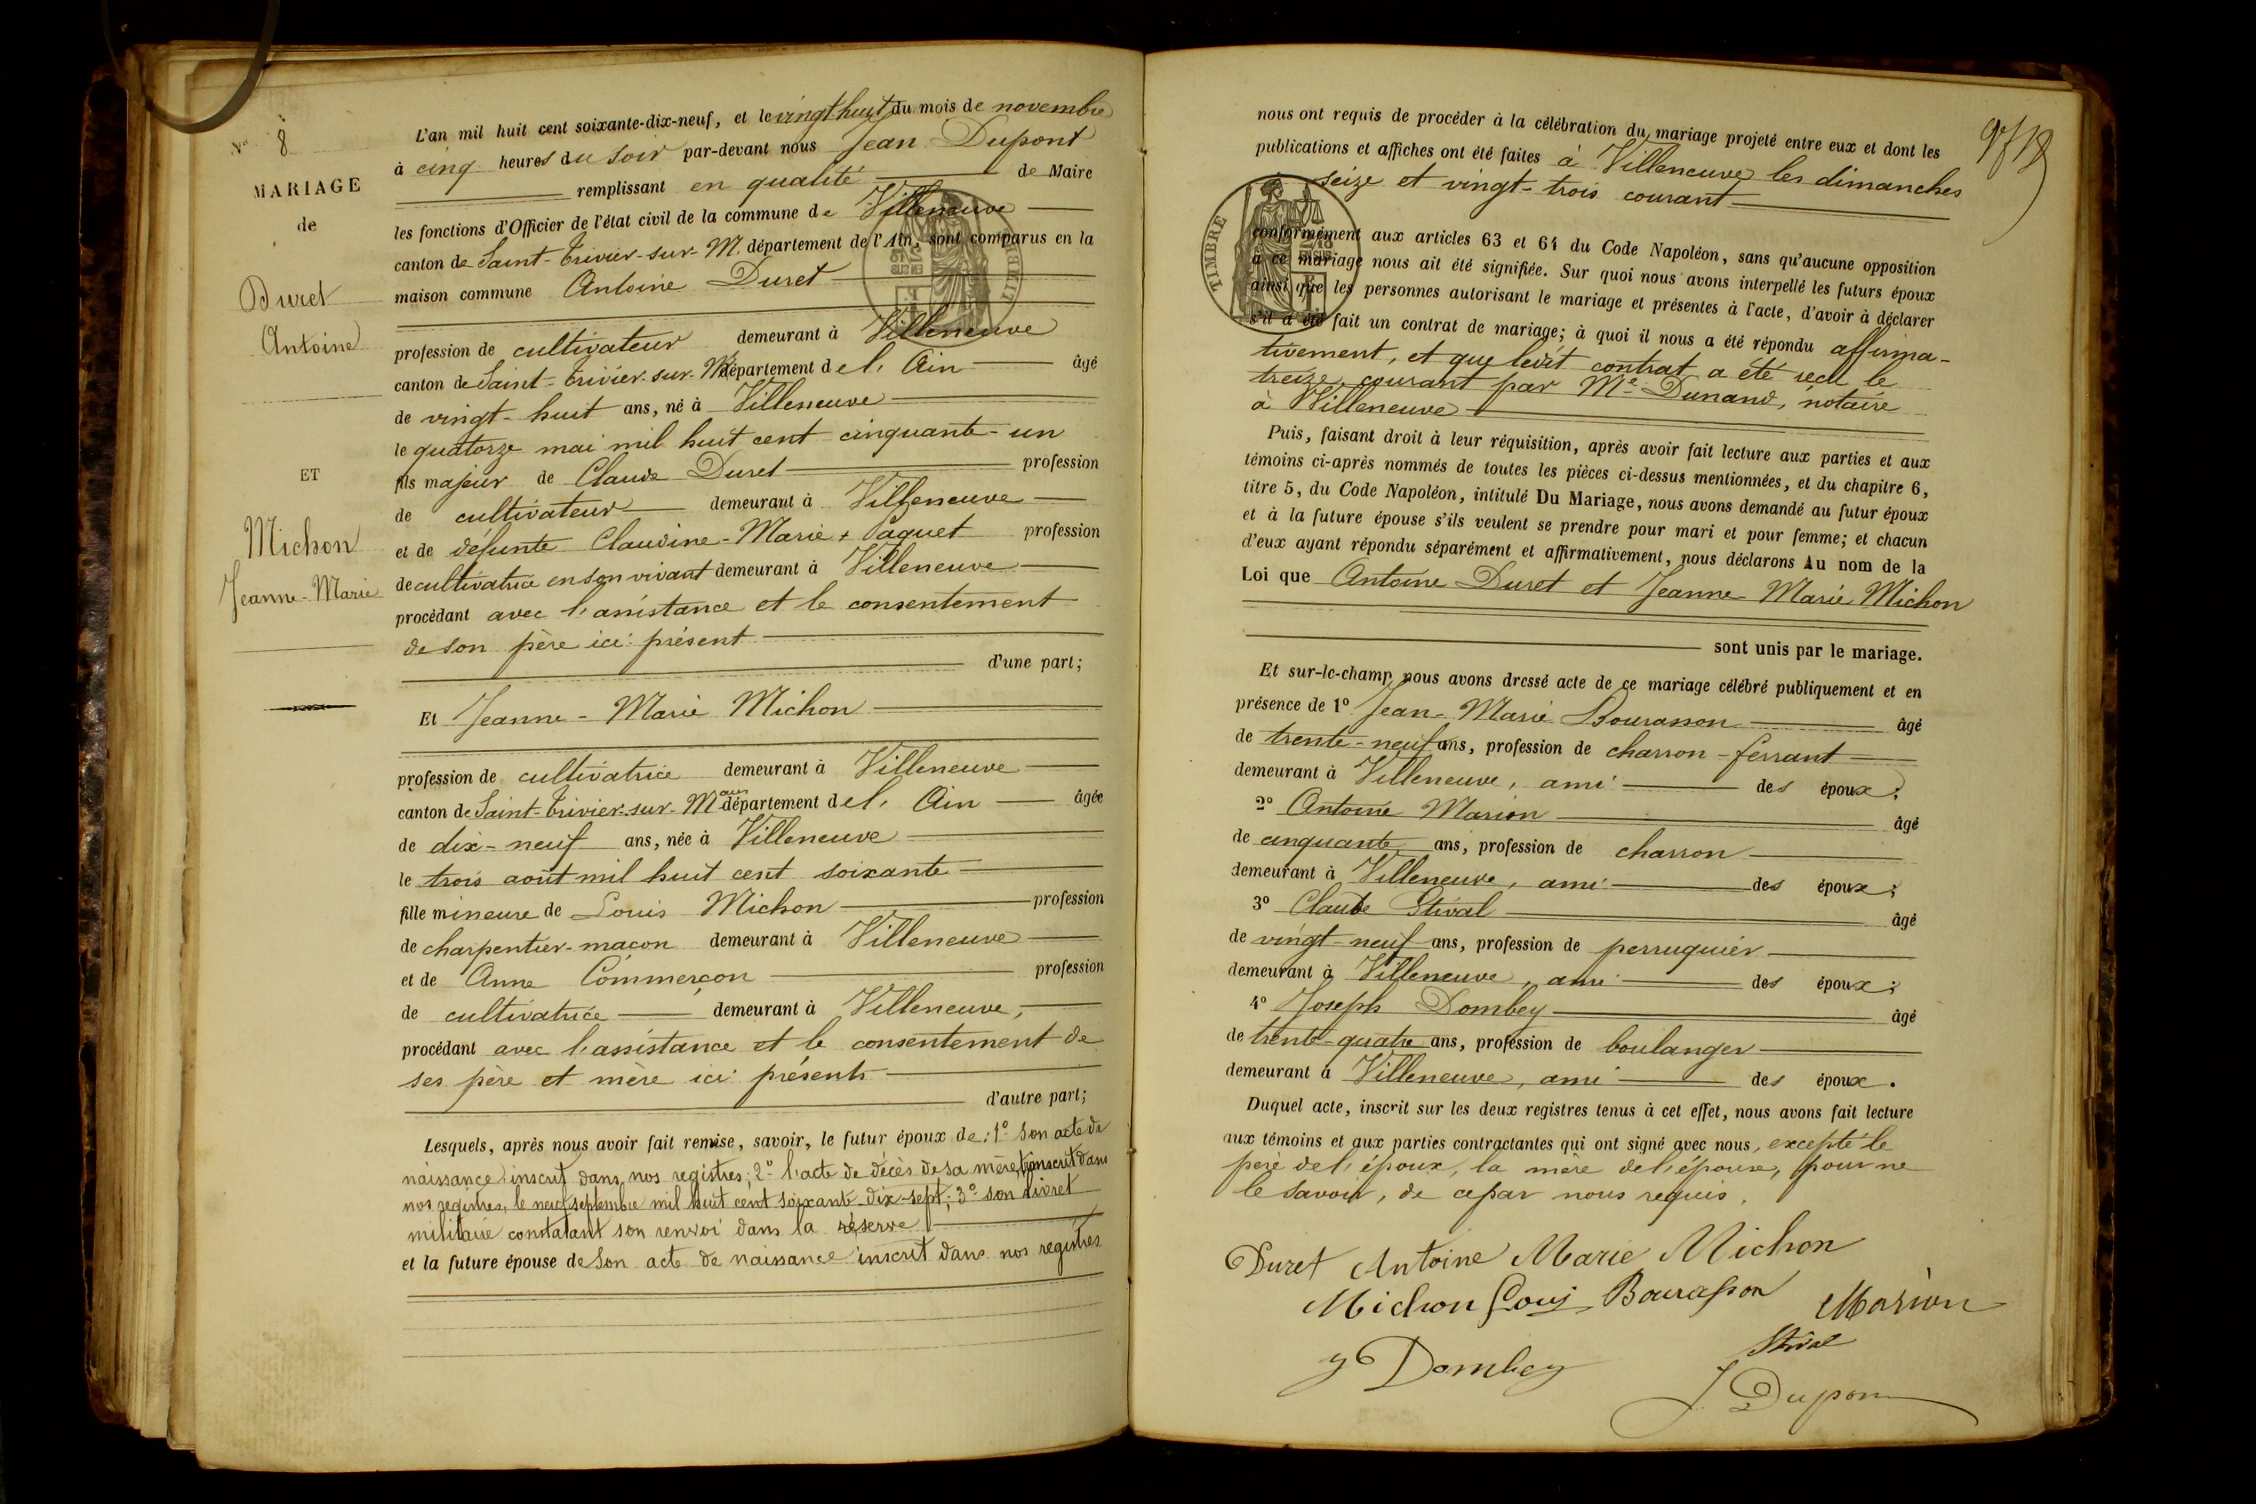 N° 8
MARIAGE
de
Duret
Antoine
ET
Michon
Jeanne-Marie
L'an mil huit cent soixante-dix-neuf, et le vingt huit du mois de novembre
à cinq heures du soir par-devant nous Jean Dupont
remplissant en qualité de Maire
les fonctions d'Officier de l'état civil de la commune de Villeneuve
canton de Saint-Trivier-sur-M. département de l'Ain, sont comparus en la
maison commune Antoine Duret
profession de cultivateur demeurant à Villeneuve
canton de Saint-Trivier-sur-M. département de l'Ain âgé
de vingt-huit ans, né à Villeneuve
le quatorze mai mil huit cent cinquante-un
fils majeur de Claude Duret profession
de cultivateur demeurant à Villeneuve
et de défunte Claudine-Marie + Paquet profession
de cultivatrice en son vivant demeurant à Villeneuve
procédant avec l'assistance et le consentement
de son père ici présent
d'une part;
Et Jeanne-Marie Michon
profession de cultivatrice demeurant à Villeneuve
canton de Saint-Trivier-sur-M département de l'Ain âgée
de dix-neuf ans, née à Villeneuve
le trois août mil huit cent soixante
fille mineure de Louis Michon profession
de charpentier-maçon demeurant à Villeneuve
et de Anne Commerçon profession
de cultivatrice demeurant à Villeneuve,
procédant avec l'assistance et le consentement de
ses père et mère ici présents
d'autre part;
Lesquels, après nous avoir fait remise, savoir, le futur époux de: 1° son acte de
naissance inscrit dans nos registres; 2° l'acte de décès de sa mère, transcrit dans
nos registres, le neuf septembre mil huit cent soixante-dix-sept; 3° son livret
militaire constatant son renvoi dans la réserve
et la future épouse de son acte de naissance inscrit dans nos registres
nous ont requis de procéder à la célébration du mariage projeté entre eux et dont les
publications et affiches ont été faites à Villeneuve les dimanches
seize et vingt-trois courant
TIMBRE
conformément aux articles 63 et 64 du Code Napoléon, sans qu'aucune opposition
à ce mariage nous ait été signifiée. Sur quoi nous avons interpellé les futurs époux
ainsi que les personnes autorisant le mariage et présentes à l'acte, d'avoir à déclarer
s'il a été fait un contrat de mariage; à quoi il nous a été répondu affirma-
tivement, et que ledit contrat a été reçu le
treize courant par Me Dunand, notaire
à Villeneuve
Puis, faisant droit à leur réquisition, après avoir fait lecture aux parties et aux
témoins ci-après nommés de toutes les pièces ci-dessus mentionnées, et du chapitre 6,
titre 5, du Code Napoléon, intitulé Du Mariage, nous avons demandé au futur époux
et à la future épouse s'ils veulent se prendre pour mari et pour femme; et chacun
d'eux ayant répondu séparément et affirmativement, nous déclarons Au nom de la
Loi que Antoine Duret et Jeanne-Marie Michon
sont unis par le mariage.
Et sur-le-champ nous avons dressé acte de ce mariage célébré publiquement et en
présence de 1° Jean-Marie Bourasson âgé
de trente-neuf ans, profession de charron-ferrant
demeurant à Villeneuve, ami des époux;
2° Antoine Marion âgé
de cinquante ans, profession de charron
demeurant à Villeneuve, ami des époux;
3° Claude Stival âgé
de vingt-neuf ans, profession de perruquier
demeurant à Villeneuve, ami des époux;
4° Joseph Dombey âgé
de trente-quatre ans, profession de boulanger
demeurant à Villeneuve, ami des époux.
Duquel acte, inscrit sur les deux registres tenus à cet effet, nous avons fait lecture
aux témoins et aux parties contractantes qui ont signé avec nous, excepté le
père de l'époux, la mère de l'épouse, pour ne
le savoir, de ce par nous requis.
Duret Antoine Marie Michon
Michon Louis Bourasson Marion
Stival
J Dombey
J Dupont